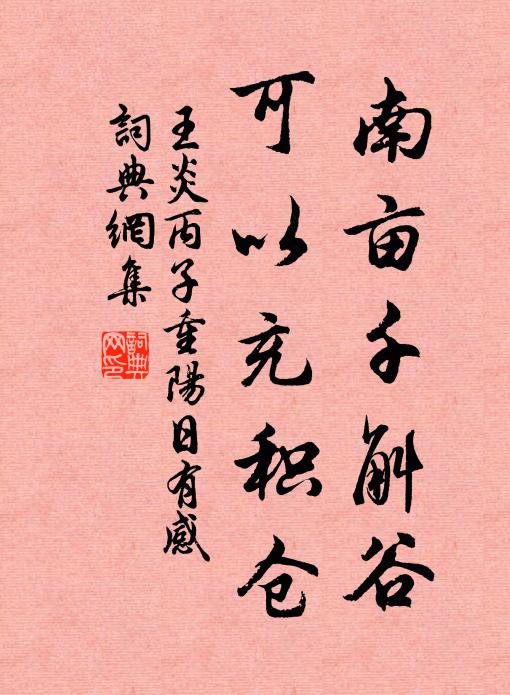 南亩千斛谷
可以充积仓
王炎丙子重陽日有感
詞典網集
詞典网印